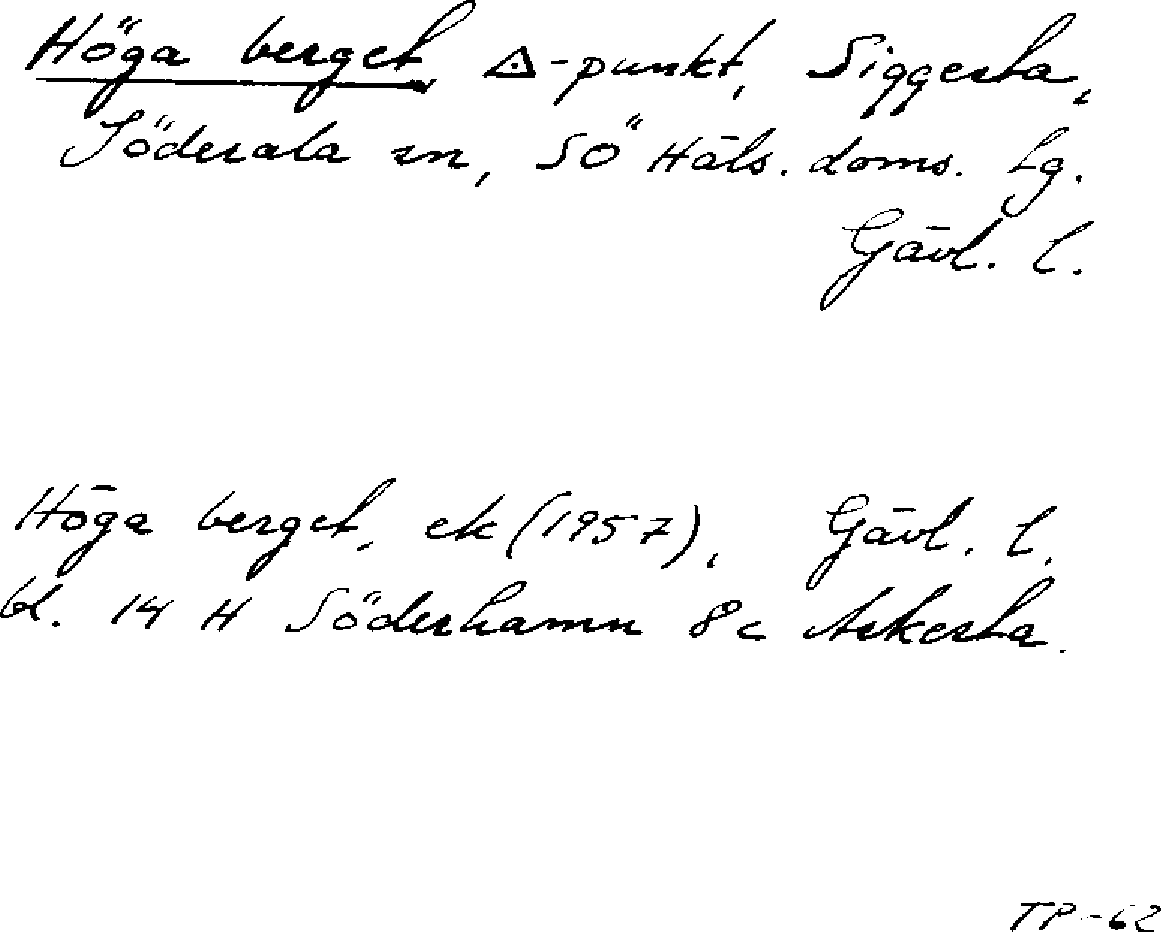 Höga berget, △-punkt, Siggesta,
Söderala sn, SÖ Häls. doms. Lg.
Gävl. l.
Höga berget, ek (1957), Gävl. l.
bl. 14 H Söderhamn 8 c Askesta.
TP-62